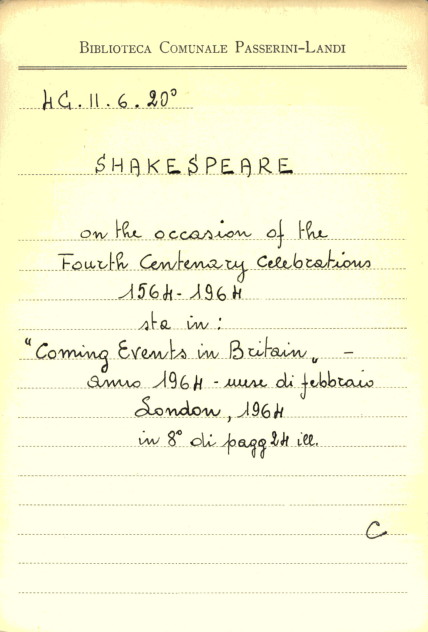 BIBLIOTECA COMUNALE PASSERINI-LANDI
4G.II.6.20°
SHAKESPEARE
on the occasion of the
Fourth Centenary Celebrations
1564-1964
sta in:
"Coming Events in Britain" -
anno 1964 - mese di febbraio
London, 1964
in 8° di pagg 24 ill.
C